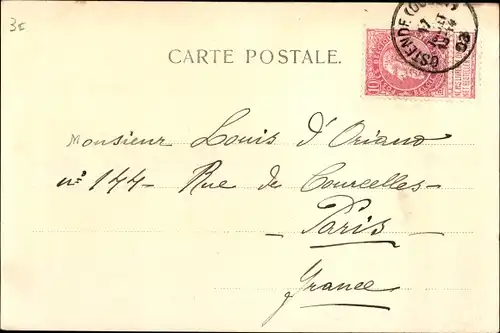 3€
OSTENDE
CARTE POSTALE.
10
Monsieur Louis d'Oriano
nº 144 - Rue de Courcelles -
- Paris -
France